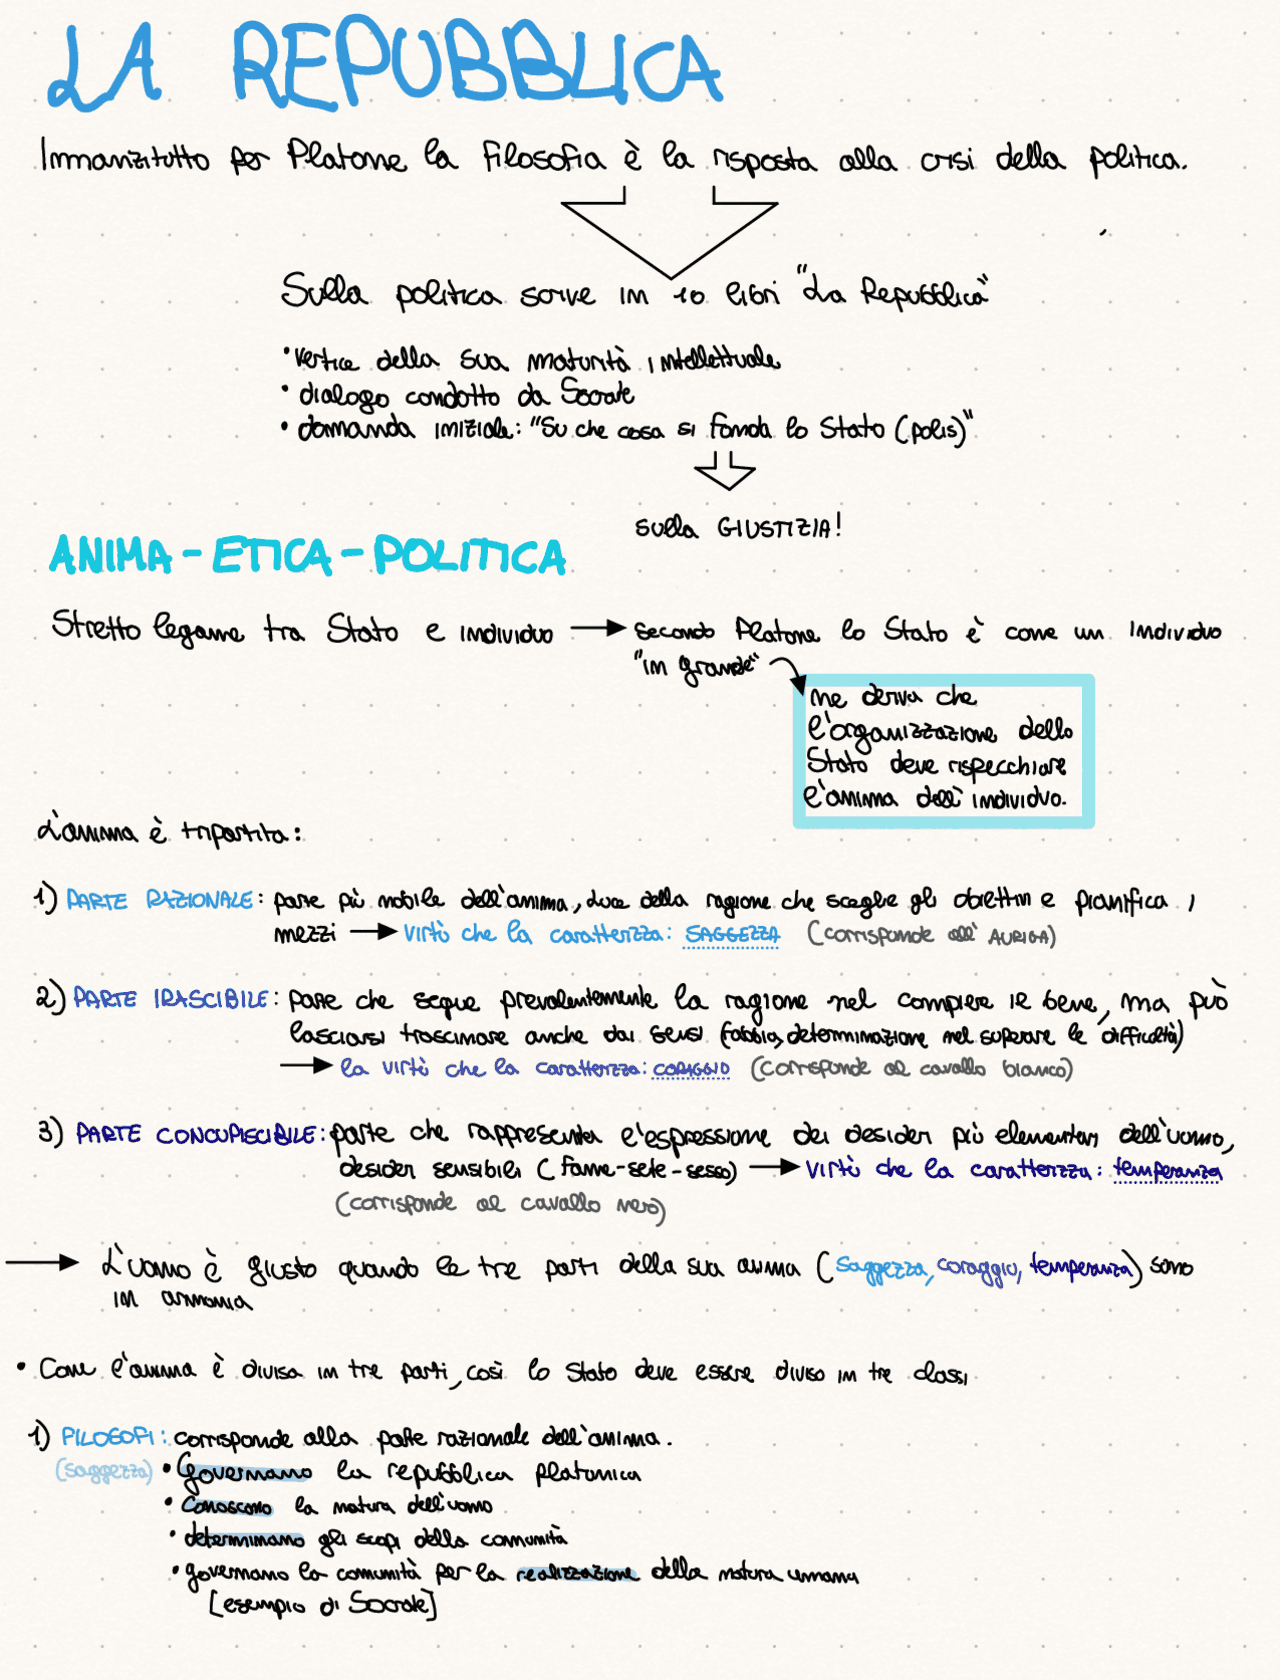 LA REPUBBLICA
Innanzitutto per Platone la filosofia è la risposta alla crisi della politica.
Sulla politica scrive in 10 libri "La Repubblica"
• vertice della sua maturità intellettuale
• dialogo condotto da Socrate
• domanda iniziale: "Su che cosa si fonda lo Stato (polis)"
sulla GIUSTIZIA!
ANIMA - ETICA - POLITICA
Stretto legame tra Stato e individuo → secondo Platone lo Stato è come un individuo
"in grande"
ne deriva che
l'organizzazione dello
Stato deve rispecchiare
l'anima dell'individuo.
L'anima è tripartita:
1) PARTE RAZIONALE: parte più nobile dell'anima, luce della ragione che sceglie gli obiettivi e pianifica i
mezzi → virtù che la caratterizza: SAGGEZZA (corrisponde all'AURIGA)
2) PARTE IRASCIBILE: parte che segue prevalentemente la ragione nel compiere il bene, ma può
lasciarsi trascinare anche dai sensi (rabbia, determinazione nel superare le difficoltà)
→ la virtù che la caratterizza: CORAGGIO (corrisponde al cavallo bianco)
3) PARTE CONCUPISCIBILE: parte che rappresenta l'espressione dei desideri più elementari dell'uomo,
desideri sensibili (fame-sete-sesso) → virtù che la caratterizza: temperanza
(corrisponde al cavallo nero)
→ L'uomo è giusto quando le tre parti della sua anima (saggezza, coraggio, temperanza) sono
in armonia
• Come l'anima è divisa in tre parti, così lo Stato deve essere diviso in tre classi
1) FILOSOFI: corrisponde alla parte razionale dell'anima.
(saggezza) • Governano la repubblica platonica
• Conoscono la natura dell'uomo
• determinano gli scopi della comunità
• governano la comunità per la realizzazione della natura umana
[esempio di Socrate]